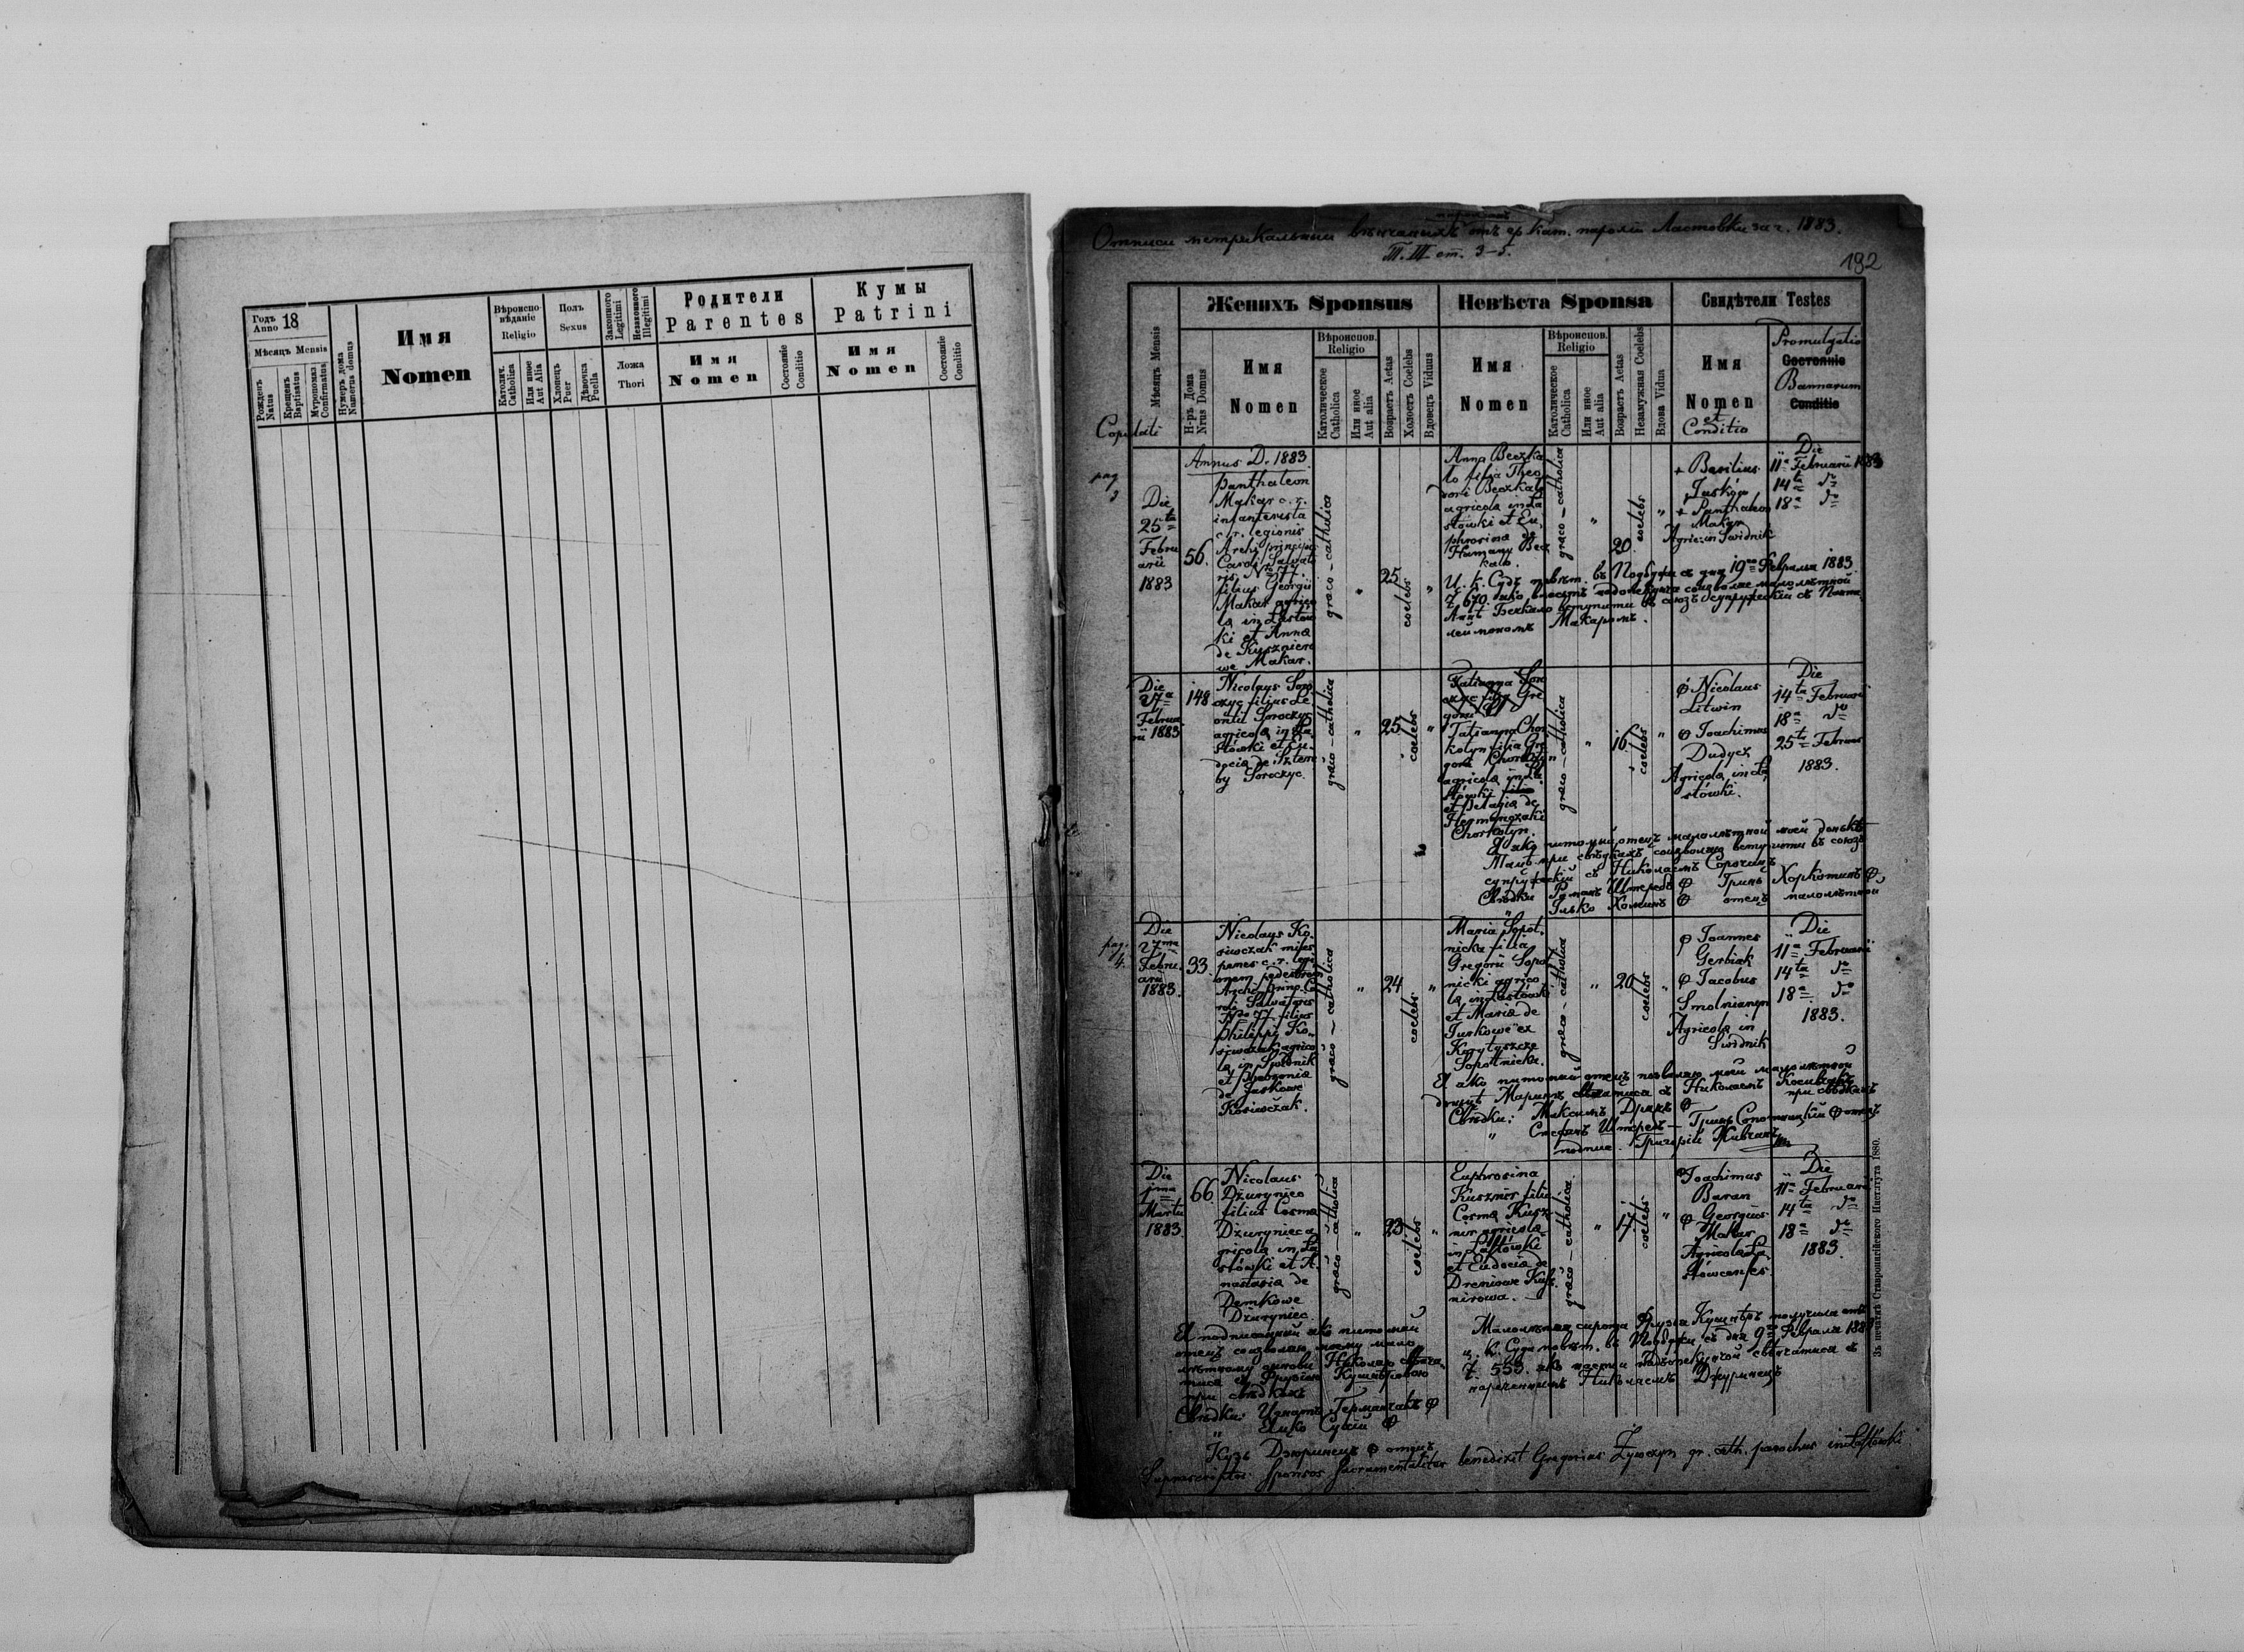 Годъ Anno 18
Мѣсяцъ Mensis
Рожденъ Natus
Крещенъ Baptisatus
Мѵропомаз. Confirmatus
Нумеръ дома Numerus domus
Имя
Nomen
Вѣроиспо-
вѣданіе
Religio
Католич. Catholica
Или иное Aut Alia
Полъ
Sexus
Хлопецъ Puer
Дѣвочка Puella
Законного Legitimi
Незаконного Illegitimi
Ложа
Thori
Родители
Parentes
Имя
Nomen
Состояніе Conditio
Кумы
Patrini
Имя
Nomen
Состояніе Conditio
Отписи метрикальныи вѣнчаныхъ отъ гр. кат. парохіи Ластовки за г. 1883.
Т. III ст. 3-5.
192
Мѣсяцъ Mensis
Copulati
Женихъ Sponsus
Н-ръ Дома Nrus Domus
Имя
Nomen
Вѣроиспов.
Religio
Католическое Catholica
Или иное Aut alia
Возрастъ Aetas
Холостъ Coelebs
Вдовецъ Viduus
Невѣста Sponsa
Имя
Nomen
Вѣроиспов.
Religio
Католическое Catholica
Или иное Aut alia
Возрастъ Aetas
Незамужная Coelebs
Вдова Vidua
Свидѣтели Testes
Имя
Nomen
et
Conditio
Promulgatio
Состояніе
Bannorum
Conditio
pag 3
Die
25ta
Febru
arii
1883
56.
Annus D. 1883.
Panthaleon
Makar c. r.
infanterista
c. r. legionis
Archi principis
Caroli Salvato
ris, No 77
filius Georgii
Makar agrico
la in Łastów
ki et Anna
de Kuszniero
we Makar.
graco-catholica
"
25
coelebs
"
Anna Beczka
ło filia Theo
dori Beczkało
agricola in Ła
stówki et Eu
phrosina de
Humany Becz
kało.
graco-catholica
"
20.
coelebs
"
+ Basilius
Juśków
+ Panthaleon
Makar
Agric. in Swidnik
Die
11a Februarii 1883
14ta do
18a do
Ц. к. Судъ повѣт. въ Подбужи съ дня 19го Февраля 1883
Ч. 670 яко власть надопекунча соизволяе малолѣтной
Аннѣ Бечкало вступити въ союзъ супружескій съ Панта
леймономъ Макаромъ.
Die
27a
Februa
rii 1883
148
Nicolaus Soro
czyc filius Le
ontii Soroczyc
agricola in Ła
stówki et Eu
docia de Sztere
by Soroczyc.
graco-catholica
"
25
coelebs
"
Tatianna Chor
kotyn filia Gre
gorii Chorkotyn
agricola in Ła
stówki filia
et Pelagia de
Hermanczaki
Chorkotyn.
graco-catholica
"
16
coelebs
"
Nicolaus
Litwin
Joachimus
Dudycz
Agricola in Ła
stówki.
Die
14ta Februarii
18a do
25ta Februar
1883.
Я яко питомый отецъ малолѣтной моей доньки
при свѣдкахъ соизволяю вступити въ союзъ
супружескій съ Николаемъ Сорочицъ
Свѣдки Романъ Штеребъ Гринь Хоркотинъ
Илько Хоминъ отецъ малолѣтной
pag. 4.
Die
27ma
Febru
arii
1883.
33.
Nicolaus Ko
siwczak miles
penes c. r. legi
onem pedestrem
Archi Prinp. Ca
roli Salvatoris
No 77 filius
Philippi Ko
siwczak agrico
la in Sopotnik
et Phebronia
de Jaskowe
Kosiwczak.
graco-catholica
"
24
coelebs
"
Maria Sopot
nicka filia
Gregorii Sopot
nicki agrico
la in Łastówki
et Maria de
Juskowe ex
Korytyszcze
Sopotnicka.
graco-catholica
"
20
coelebs
"
Joannes
Gerbiak
Jacobus
Smolnianyn
Agricola in
Swidnik
Die
11a Februarii
14ta do
18a do
1883.
Я яко питомый отецъ позволяю моей малолѣтной
донцѣ Маринѣ вѣнчатися съ Николаемъ Косивчакъ
при свѣдкахъ
Свѣдки: Максимъ Дринь
" Стефанъ Штеребъ — Гринь Сопотницкій отецъ
подпис. Григорій Живчинъ
Die
1ma
Martii
1883
66
Nicolaus
Dżurynieс
filius Cosma
Dżuryniec a
gricola in Ła
stówki et A
nastasia de
Demkowe
Dżuryniec
graco-catholica
"
23
coelebs
"
Euphrosina
Kusznir filia
Cosma Kusz
nir agricola
in Łastówki
et Eudocia de
Drenisowe Kusz
nirowa.
graco-catholica
"
17.
coelebs
"
Joachimus
Baran
Georgius
Makar
Agricola Ła
stówcenses.
Die
11a Februarii
14ta do
18a do
1883.
Я подписаный яко питомый
отецъ соизволяю моему мало
лѣтному сынови Николаю вѣнча
тися съ Фрузіею Кушнѣровою
при свѣдкахъ
Свѣдки: Игнатъ Германчакъ
" Яцко Сухій
Кузь Джоринецъ отецъ
Малолѣтная сирота Фрузя Кушнѣръ получила отъ
ц. к. Суда повѣт. въ Подбужи съ дня 9го Февраля 1883
Ч. 553. яко власти надопекунчой свѣнчатися съ
нареченнымъ Николаемъ Джуринецъ
Supranscriptos sponsos sacramentaliter benedixit Gregorius Żywczyn gr. cath. parochus in Łastówki.
Зъ печатнѣ Ставропигійского Института 1880.